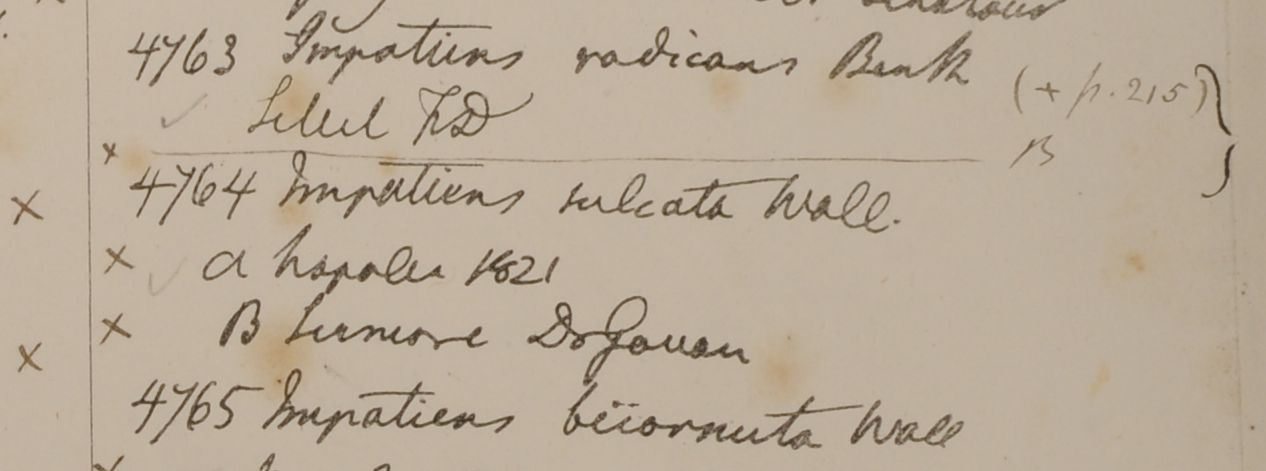 4763 Impatiens radicans Benth
Sillet FD
(+ p. 215)
B
4764 Impatiens sulcata Wall.
a Napalia 1821
B Sirmore Dr Govan
4765 Impatiens bicornuta Wall